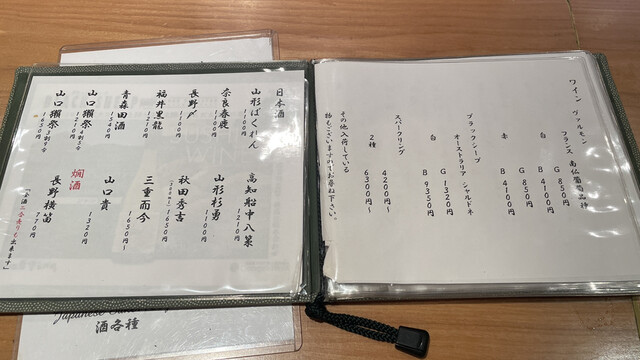 ワイン ヴァルモン
フランス 南仏葡萄品種
白 G 850円
B 4100円
赤 G 850円
B 4100円
ブラックシープ
オーストラリア シャルドネ
白 G 1320円
B 9350円
スパークリング 4200円〜
2種 6300円〜
その他入荷している
物もございます。お尋ね下さい。
日本酒
山形ばくれん 1100円
奈良春鹿 1100円
長野〆 1100円
福井黒龍 1210円
青森田酒 1340円
山口獺祭 4割5分 1210円
山口獺祭 3割9分 1650円
高知船中八策 1210円
山形杉勇 1100円
秋田秀吉 1650円
三重而今 1650円〜
山口貴 1320円
燗酒
長野横笛 770円
酒各種